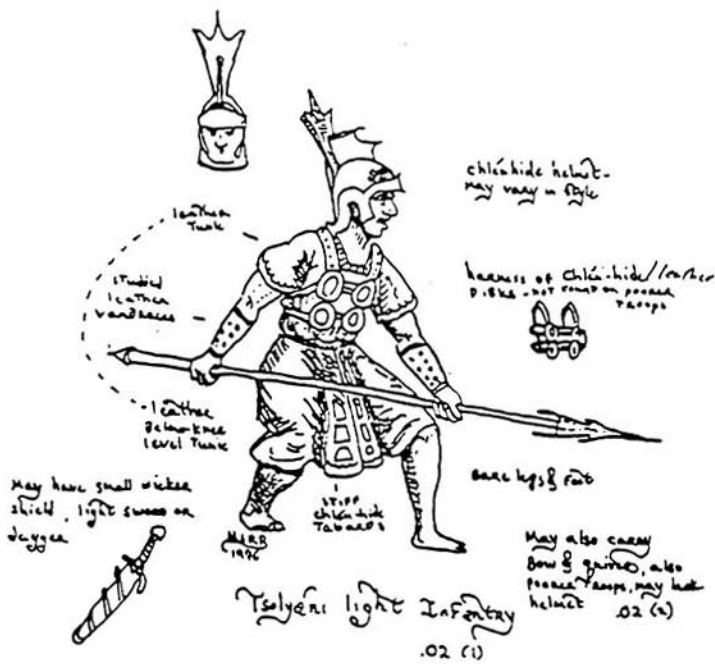 chlén hide helmet-
may vary in style
leather
Tunic
studded
leather
vambraces
harness of Chlén-hide/leather
Disks - not found on poorer
Troops
leather
Below-knee
level Tunic
Bare legs & Feet
May have small wicker
shield, light sword or
dagger
STIFF
Chlén hide
Tabards
1976
May also carry
Bow & quiver, also
poorer Troops, may lack
helmet .02 (2)
Tsolyáni light Infantry
.02 (1)